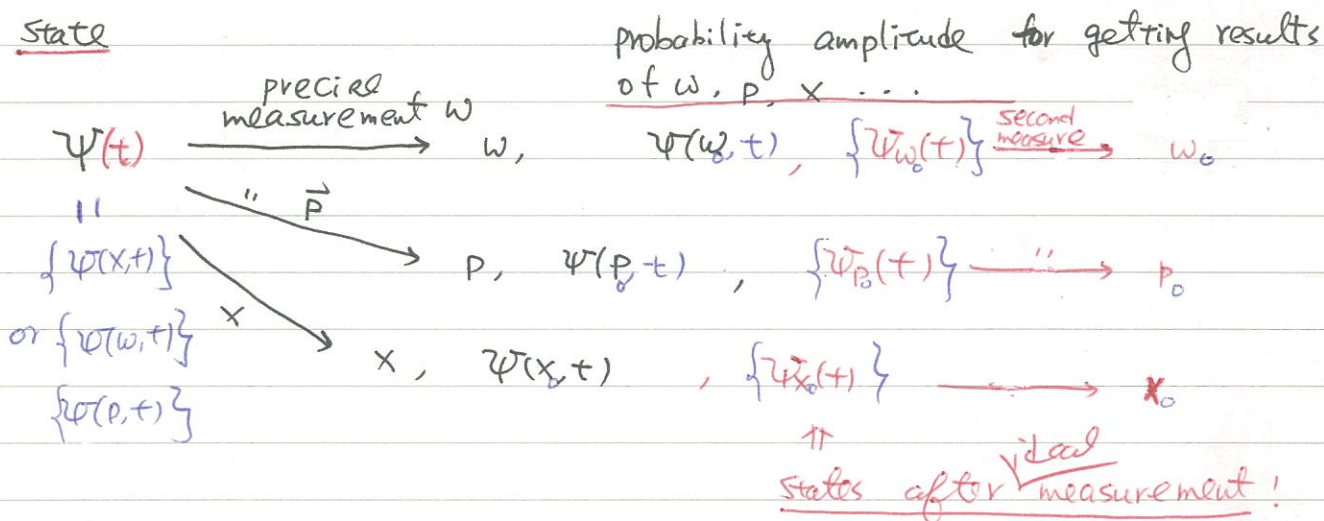 state
probability amplitude for getting results
of ω, p, x ...
precise
measurement ω
Ψ(t) ω, Ψ(ω₀,t), {Ψω₀(t)} second measure ω₀
" p⃗
=
{Ψ(x,t)} p, Ψ(p₀,t), {Ψp₀(t)} " p₀
or {Ψ(ω,t)} x
x, Ψ(x₀,t), {Ψx₀(t)} x₀
{Ψ(p,t)}
states after ideal measurement!